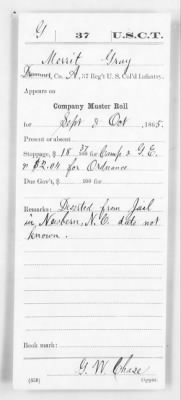 G 37 U.S.C.T.
Merrit Gray
Drummer, Co. A, 37 Reg't U. S. Col'd Infantry.
Appears on
Company Muster Roll
for Sept & Oct, 1865.
Present or absent
Stoppage, $ 18 37/100 for Camp & G. E.
& $2.04 for Ordnance
Due Gov't, $ 100 for
Remarks: Deserted from Jail
in Newbern, N. C. date not
known.
Book mark:
G. W. Chase
(358) Copyist.